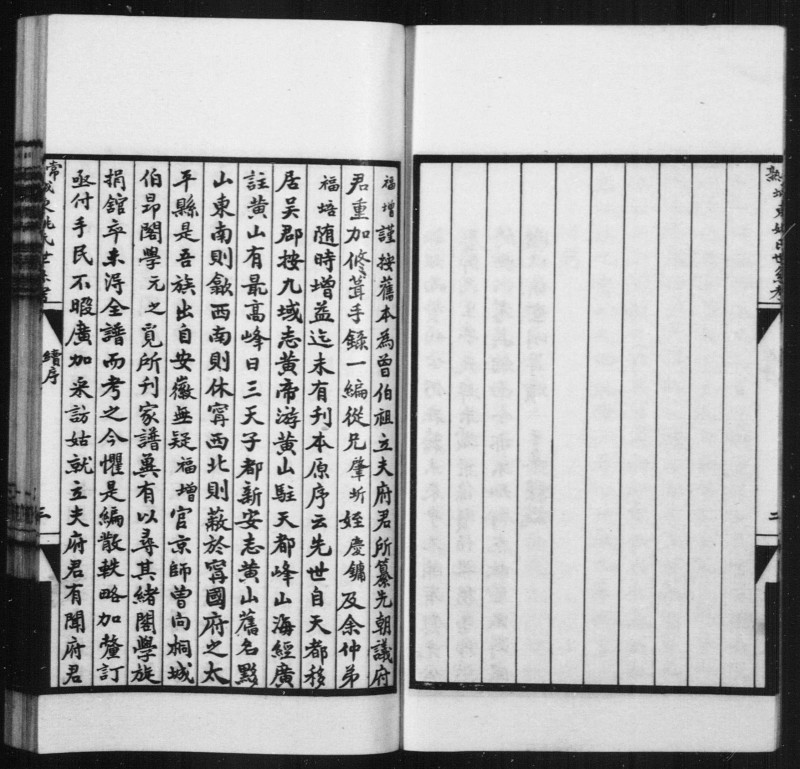 福增謹按舊本為曾伯祖立夫府君所纂先朝議府
君重加修葺手錄一編從兄肇圻姪慶鏞及余仲弟
福培隨時增益迄未有刊本原序云先世自天都移
居吳郡按九域志黃帝游黃山駐天都峰山海經廣
註黃山有最高峰曰三天子都新安志黃山舊名黟
山東南則歙西南則休寧西北則蔽於寧國府之太
平縣是吾族出自安徽無疑福增官京師曾向桐城
伯昂閣學元之覓所刊家譜冀有以尋其緒閣學旋
捐館卒未得全譜而考之今懼是編散軼略加釐訂
亟付手民不暇廣加采訪姑就立夫府君有聞府君
續序
三
二